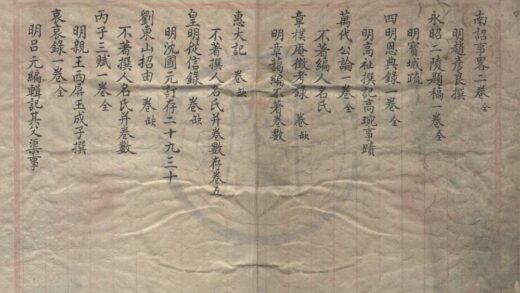 南詔事畧二卷 全
明趙彥良撰
永昭二陵題稿一卷 全
明賓城疏
四明恩典錄一卷 全
明高祉撰記高琬事蹟
萬代公論一卷 全
不著編人名氏
章樸庵徵考錄 卷缺
明章撝編不著卷數
惠大記 卷缺
不著撰人名氏并卷數存卷五
皇明從信錄 卷缺
明沈國元訂存二十九三十
劉東山招由 卷缺
不著撰人名氏并卷數
丙子三賦一卷 全
明親王西屏玉成子撰
哀哀錄一卷 全
明呂元編輯記其父渠事